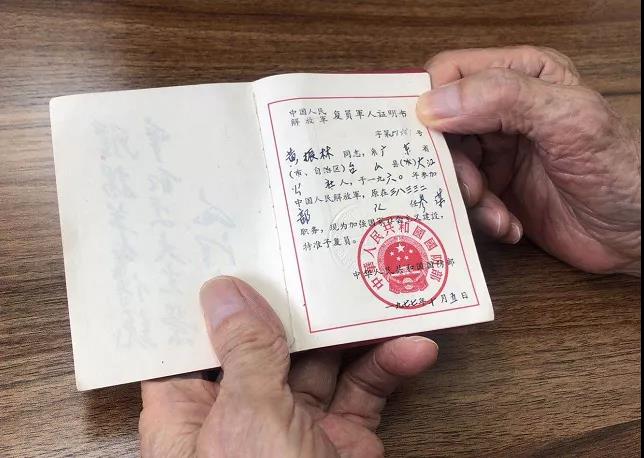 中国人民
解放军 复员军人证明书
字第 号
黄振林 同志，系广东省
(市、自治区)台山县(市)大江
公社人，于一九六〇年参加
中国人民解放军，原在三八三三二
部队任参谋
职务，现为加强国家社会主义建设，
特准予复员。
中华人民共和国国防部
中華人民共和國國防部
一九 年 月 日